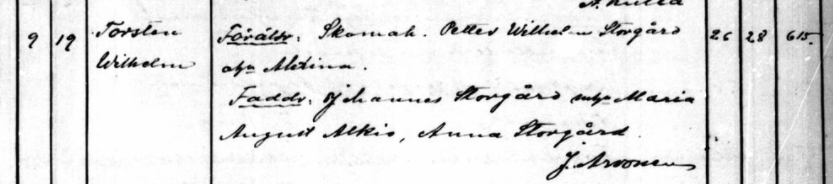 9 19 Torsten Föräldr: Skomak. Petter Wilhelm Storgård 26 28 615.
Wilhelm o/hu Aldina.
Faddr: Johannes Storgård o/hu Maria
August Alkio, Anna Storgård.
J. Arvonen